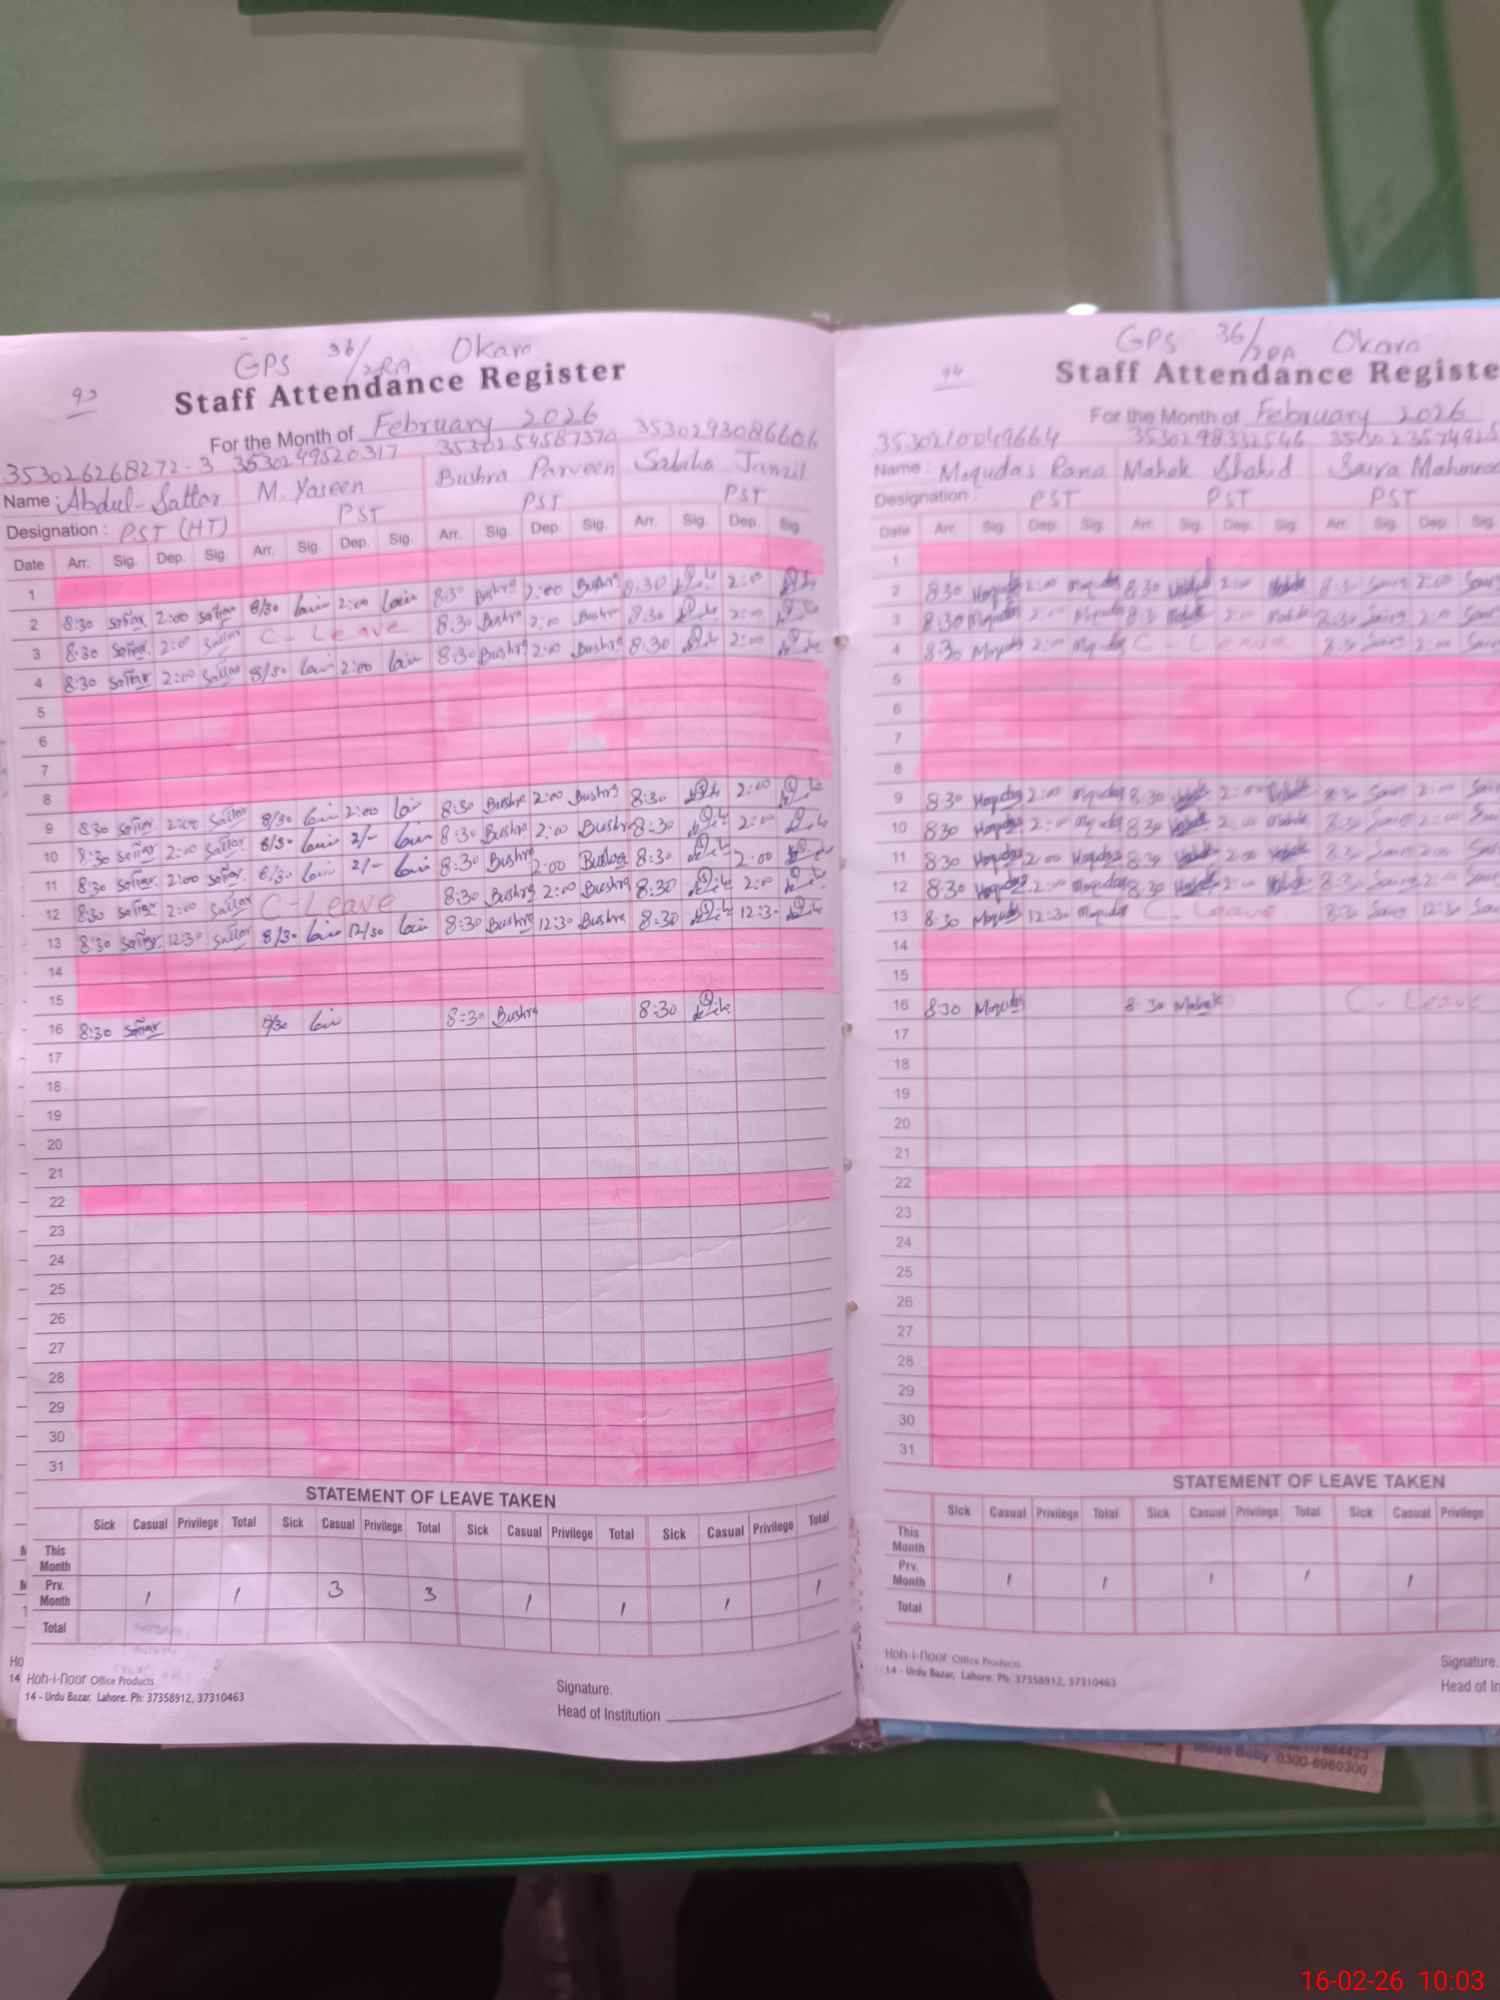 93
GPS 36/2RA Okara
Staff Attendance Register
For the Month of February 2026
353026268272-3 3530249520317 3530254587370 3530293086606
Name : Abdul-Sattar M. Yaseen Bushra Parveen Sabiha Jamil
Designation : PST (HT) PST PST PST
Date Arr. Sig. Dep. Sig. Arr. Sig. Dep. Sig. Arr. Sig. Dep. Sig. Arr. Sig. Dep. Sig.
1
2 8:30 Sattar 2:00 Sattar 8/30 2:00 8:30 Bushra 2:00 Bushra 8:30 2:00
3 8:30 Sattar 2:00 Sattar C-Leave 8:30 Bushra 2:00 Bushra 8:30 2:00
4 8:30 Sattar 2:00 Sattar 8/30 2:00 8:30 Bushra 2:00 Bushra 8:30 2:00
5
6
7
8
9 8:30 Sattar 2:00 Sattar 8/30 2:00 8:30 Bushra 2:00 Bushra 8:30 2:00
10 8:30 Sattar 2:00 Sattar 8/30 2/- 8:30 Bushra 2:00 Bushra 8:30 2:00
11 8:30 Sattar 2:00 Sattar 8/30 2/- 8:30 Bushra 2:00 Bushra 8:30 2:00
12 8:30 Sattar 2:00 Sattar C-Leave 8:30 Bushra 2:00 Bushra 8:30 2:00
13 8:30 Sattar 12:30 Sattar 8/30 12/30 8:30 Bushra 12:30 Bushra 8:30 12:30
14
15
16 8:30 Sattar 8/30 8:30 Bushra 8:30
17
18
19
20
21
22
23
24
25
26
27
28
29
30
31
STATEMENT OF LEAVE TAKEN
Sick Casual Privilege Total Sick Casual Privilege Total Sick Casual Privilege Total Sick Casual Privilege Total
This Month
Prv. Month 1 1 3 3 1 1 1 1
Total
Koh-i-Noor Office Products
14 - Urdu Bazar, Lahore. Ph: 37358912, 37310463
Signature.
Head of Institution
94
GPS 36/2RA Okara
Staff Attendance Registe
For the Month of February 2026
3530210049664 3530298332546
Name : Moqudas Rana Mahek Shahid Saira Mahmood
Designation : PST PST PST
Date Arr. Sig. Dep. Sig. Arr. Sig. Dep. Sig. Arr. Sig. Dep. Sig.
1
2 8:30 Moqudas 2:00 Moqudas 8:30 Mahek 2:00 Mahek 8:30 Saira 2:00 Sair
3 8:30 Moqudas 2:00 Moqudas 8:30 Mahek 2:00 Mahek 8:30 Saira 2:00 Sair
4 8:30 Moqudas 2:00 Moqudas C-Leave 8:30 Saira 2:00 Sair
5
6
7
8
9 8:30 Moqudas 2:00 Moqudas 8:30 Mahek 2:00 Mahek 8:30 Saira 2:00 Sai
10 8:30 Moqudas 2:00 Moqudas 8:30 Mahek 2:00 Mahek 8:30 Saira 2:00 Sai
11 8:30 Moqudas 2:00 Moqudas 8:30 Mahek 2:00 Mahek 8:30 Saira 2:00 Sai
12 8:30 Moqudas 2:00 Moqudas 8:30 Mahek 2:00 Mahek 8:30 Saira 2:00 Sai
13 8:30 Moqudas 12:30 Moqudas C-Leave 8:30 Saira 12:30 Sai
14
15
16 8:30 Moqudas 8:30 Mahek C-Leave
17
18
19
20
21
22
23
24
25
26
27
28
29
30
31
STATEMENT OF LEAVE TAKEN
Sick Casual Privilege Total Sick Casual Privilege Total Sick Casual Privilege
This Month
Prv. Month 1 1 1 1 1
Total
Koh-i-Noor Office Products
14 - Urdu Bazar, Lahore. Ph: 37358912, 37310463
Signature.
Head of In
Baby 0300-6960300
16-02-26 10:03